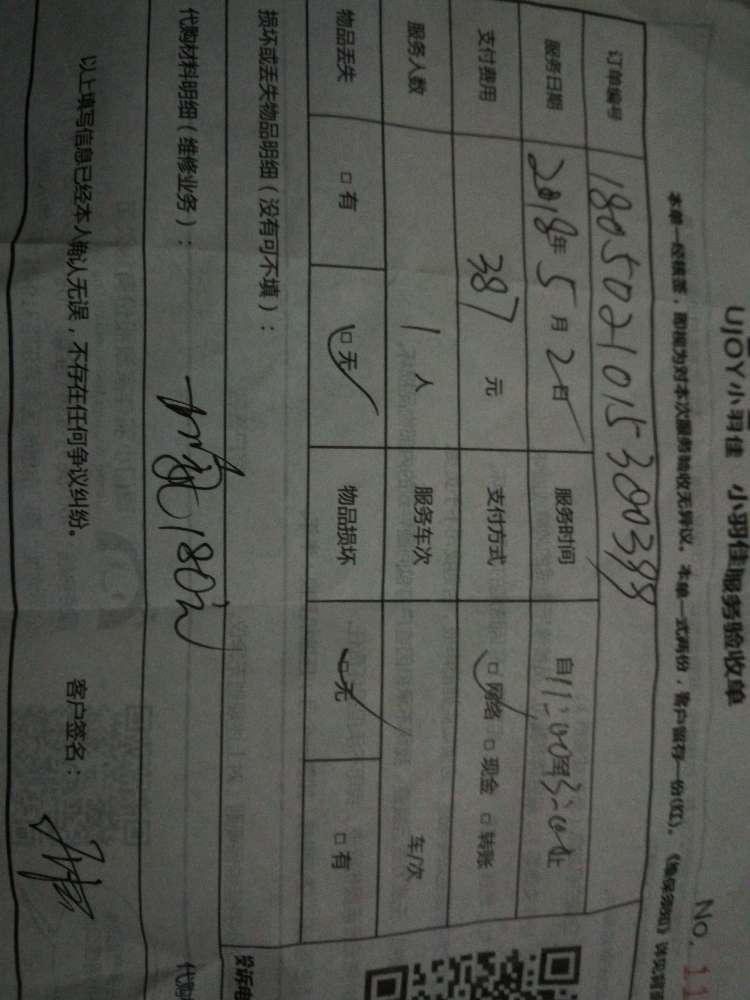 UJOY小羽佳 小羽佳服务验收单
No. 11
本单一经核签，即视为对本次服务验收无异议。本单一式两份，客户留存一份(XX)。
订单编号 180502101530039
服务日期 2018年5月2日 服务时间 自11:00至3:00止
支付费用 387元 支付方式 □网络 □现金 □转账
服务人数 1人 服务车次 车/次
物品丢失 □有 □无 物品损坏 □无 □有
损坏或丢失物品明细（没有可不填）：
代购材料明细（维修业务）： 180元
以上填写信息已经本人确认无误，不存在任何争议纠纷。 客户签名：
投诉电
代购